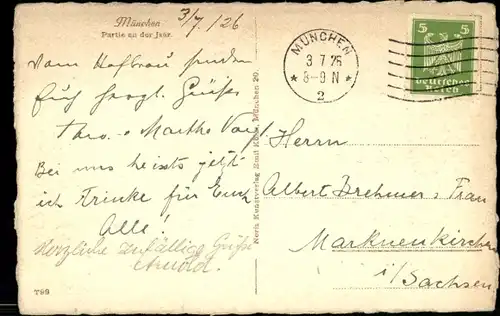 München
Partie an der Jsar.
3/7. 26
Vom Hofbräu senden
Euch herzl. Grüße
Theo. & Martha
Bei uns heissts jetzt
ich Trinke für Euch
Alle!
Herzliche zufällige Grüße
Arnold.
799
Nora Kunstverlag Emil Köhn, München 20.
MÜNCHEN
3 7 26
* 8-9 N *
2
5 5
Deutsches
Reich
Herrn
Albert Brehmer, u. Frau
Markneukirchen
i/Sachsen